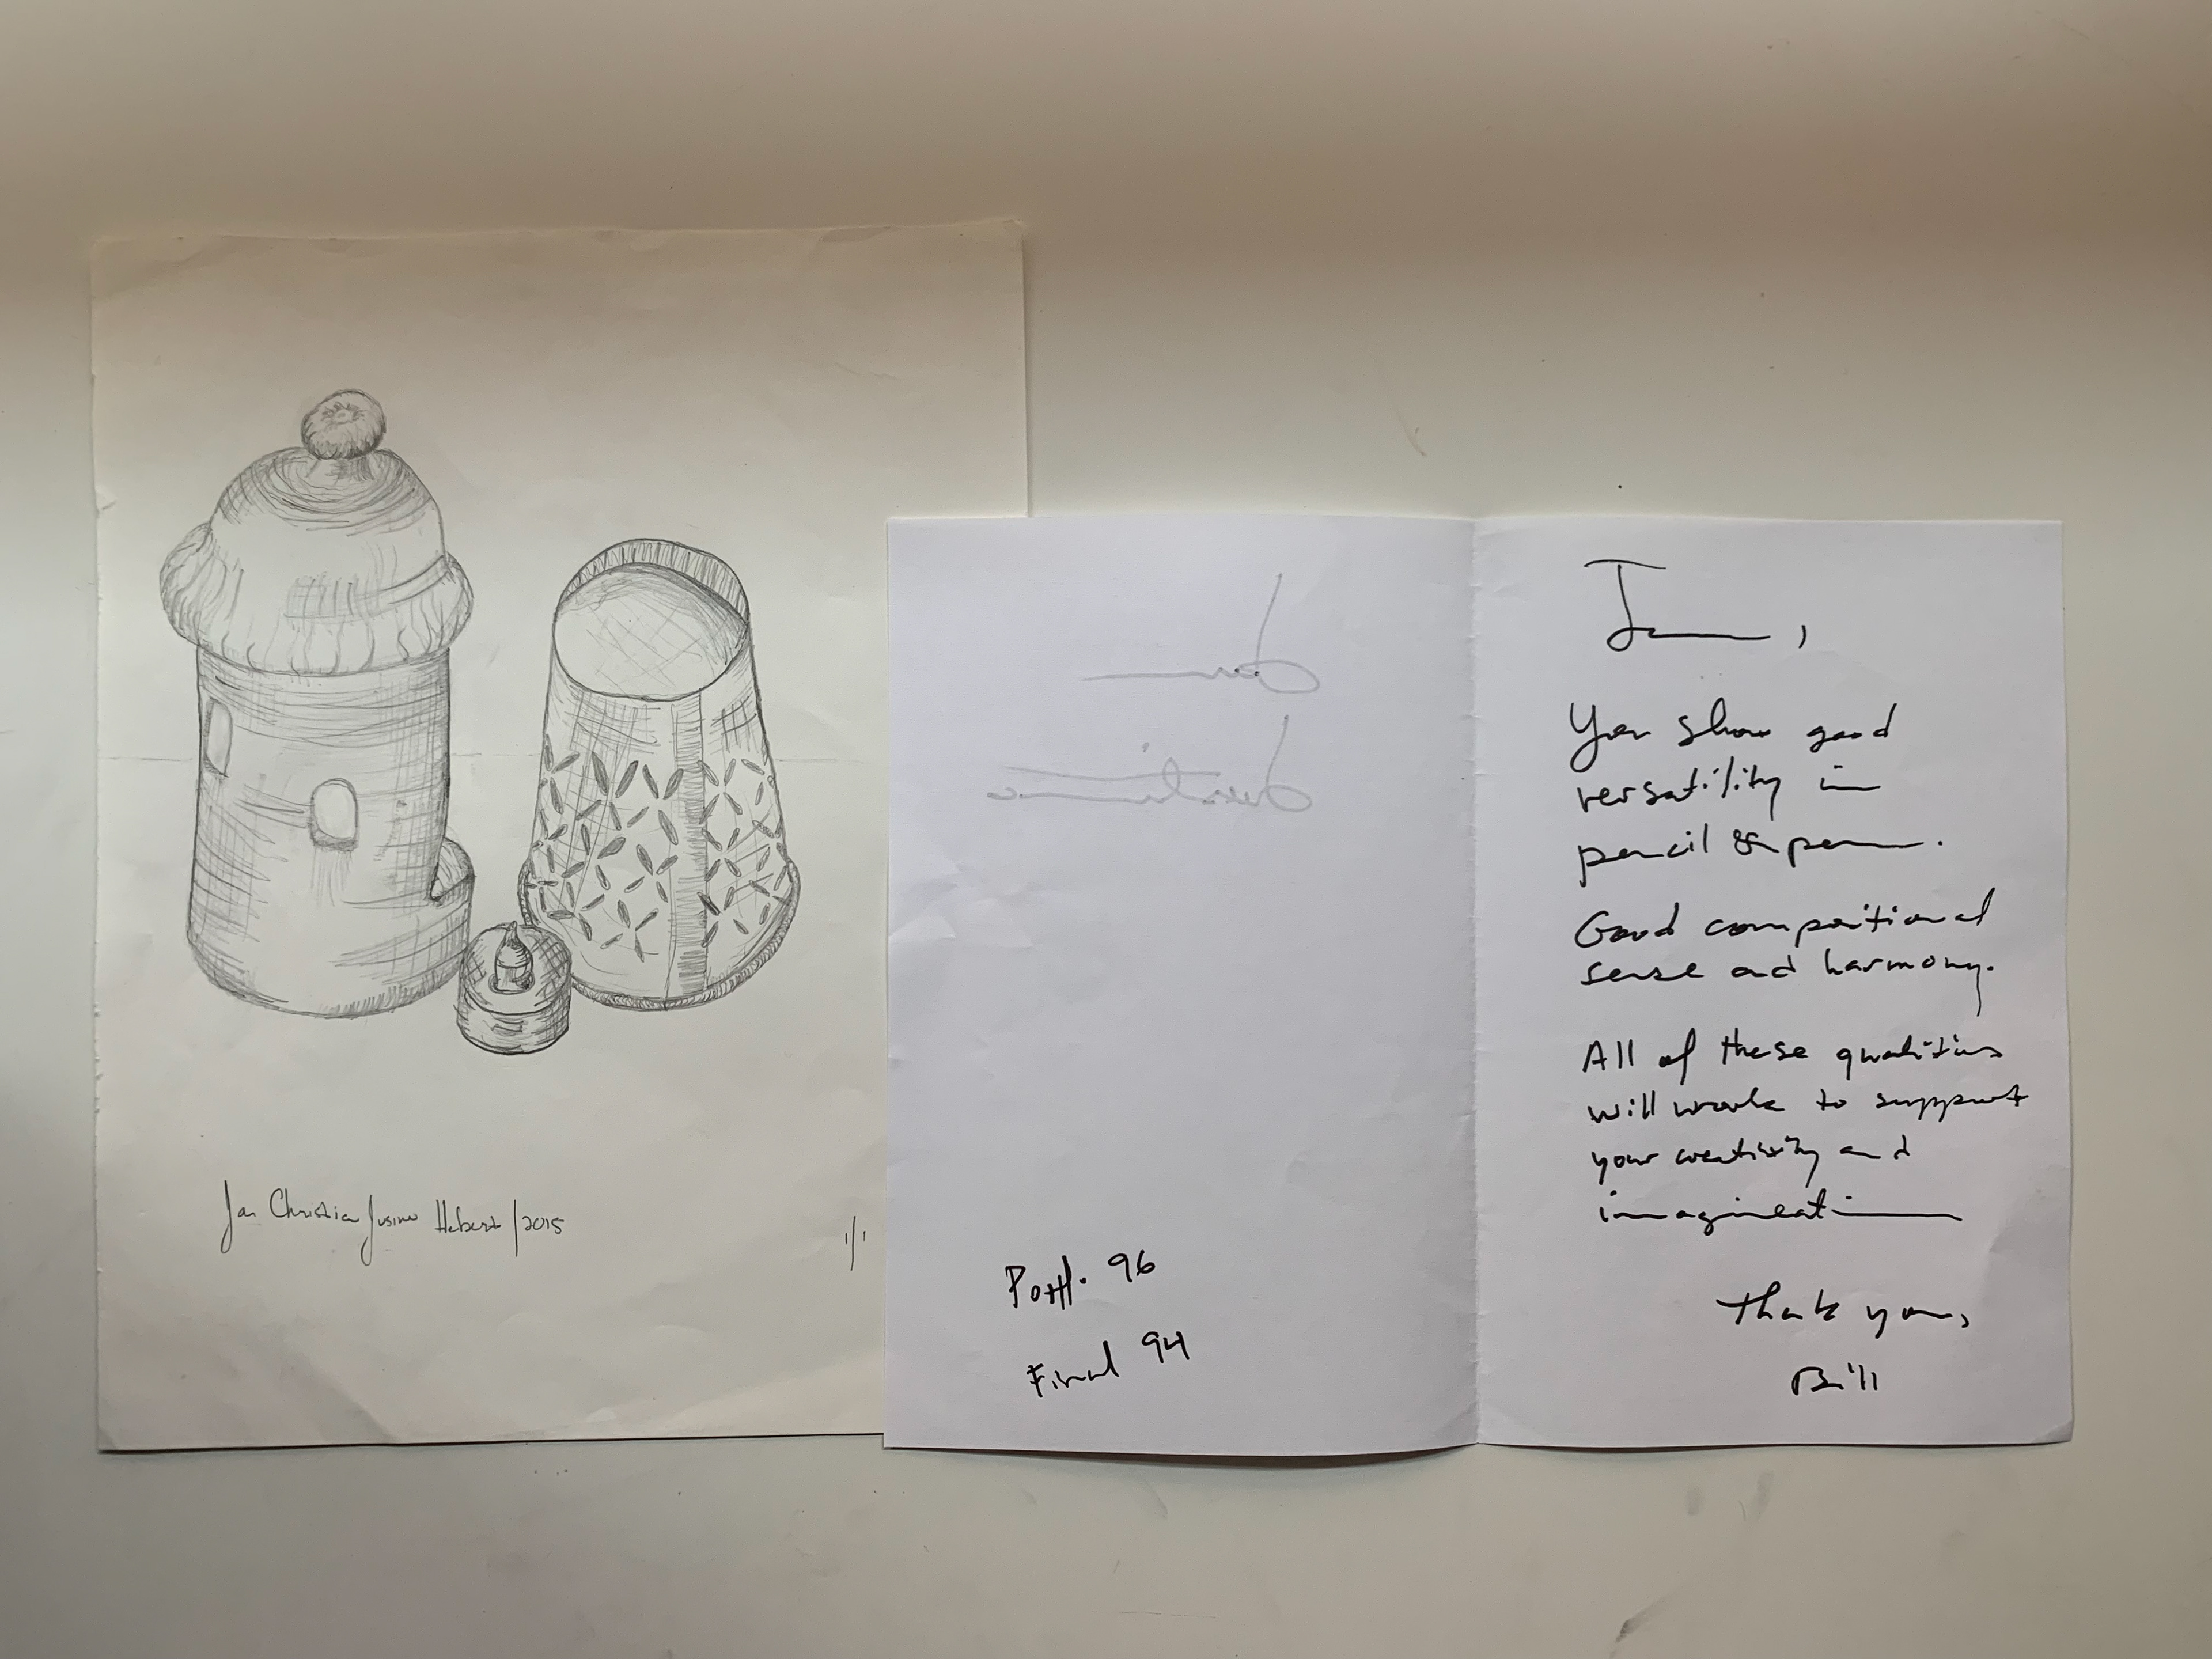 Jan Christian Jusino Hebert/2015
1/1
Portf. 96
Final 94
Jan,
You show good
versatility in
pencil & pen.
Good compositional
sense and harmony.
All of these qualities
will work to support
your creativity and
imagination
Thank you,
Bill